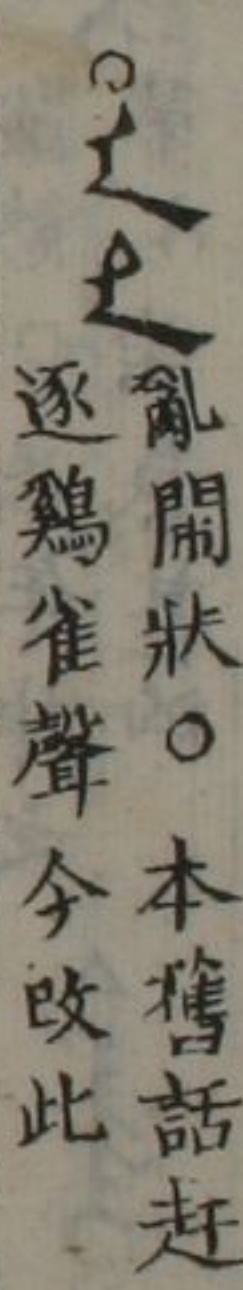 ○
亂閙狀○本舊話赶
逐鷄雀聲今改此